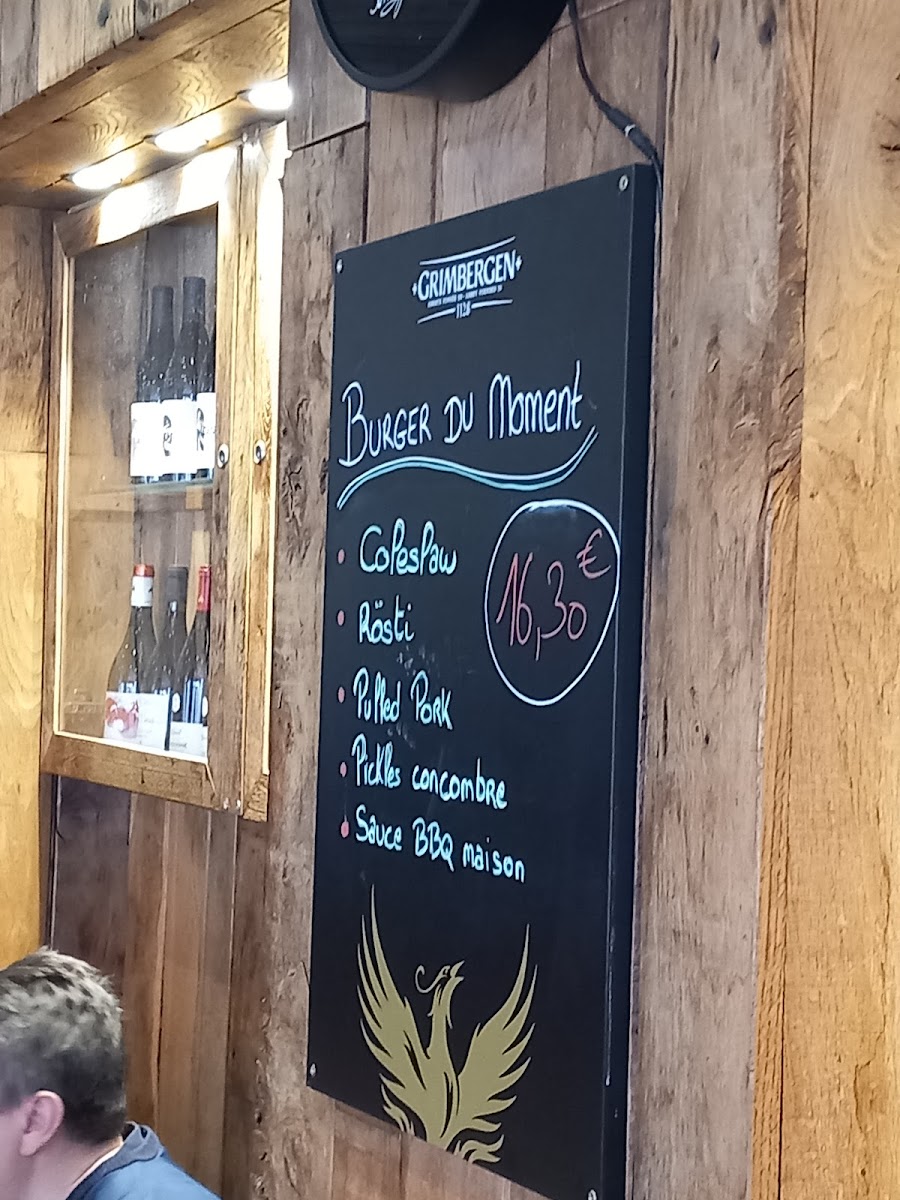 GRIMBERGEN
1128
BURGER DU Moment
Coleslaw
16,30€
Rösti
Pulled Pork
Pickles concombre
Sauce BBQ maison